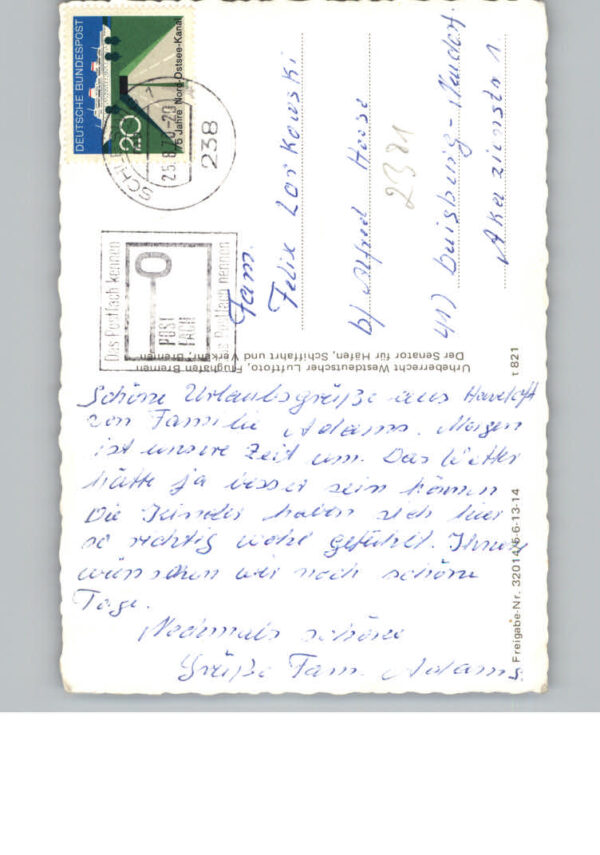 DEUTSCHE BUNDESPOST
20
75 Jahre Nord-Ostsee-Kanal
25.8.70-20
238
Das Postfach kennen
POST
FACH
Das Postfach nennen
Fam.
Felix Lorkowski
b/ Alfred Hesse
2321
41) Duisburg-Neudorf
Akazienstr 1.
Urheberrecht Westdeutscher Luftfoto, Flughafen Bremen
Der Senator für Häfen, Schiffahrt und Verkehr, Bremen
t 821
Freigabe-Nr. 32014/6-6-13-14
Schöne Urlaubsgrüße aus Havetoft
von Familie Adams. Morgen
ist unsere Zeit um. Das Wetter
hätte ja besser sein können
Die Kinder haben sich hier
so richtig wohl gefühlt. Ihnen
wünschen wir noch schöne
Tage.
Nochmals schöne
Grüße Fam. Adams.